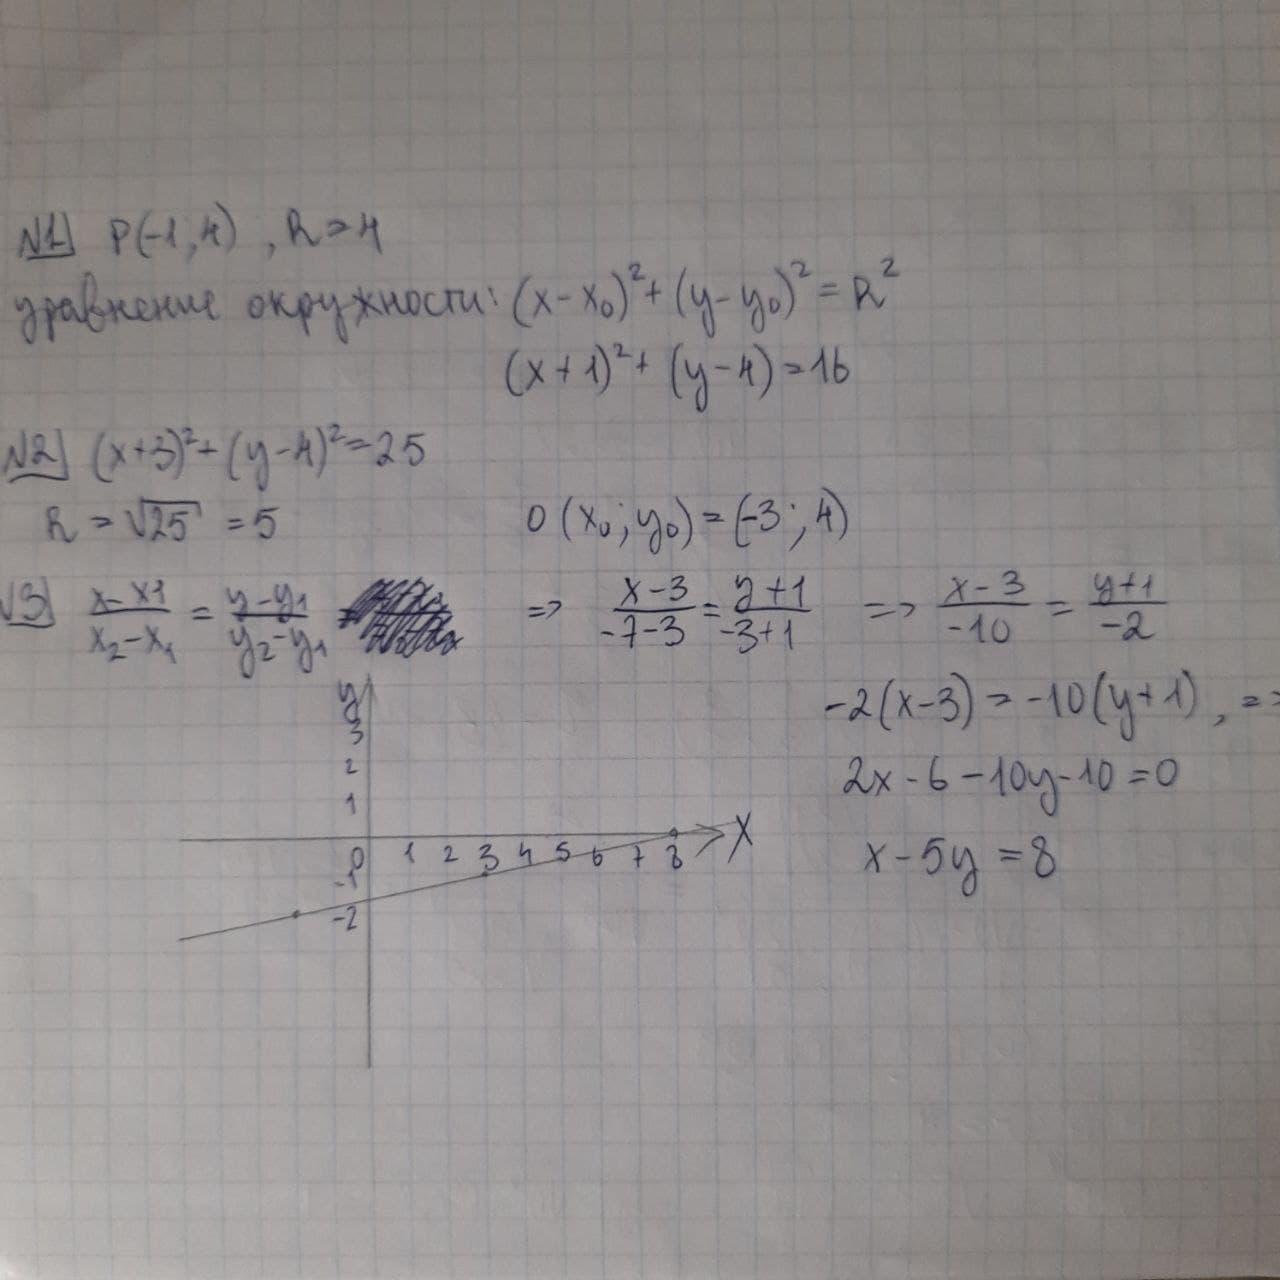 №1 P(-1;4), R=4
уравнение окружности: (x-x₀)²+(y-y₀)²=R²
(x+1)²+(y-4)=16
№2 (x+3)²+(y-4)²=25
R=√25=5 O(x₀;y₀)=(-3;4)
№3 (x-x1)/(x₂-x₁) = (y-y₁)/(y₂-y₁) => (x-3)/(-7-3) = (y+1)/(-3+1) => (x-3)/(-10) = (y+1)/(-2)
-2(x-3)=-10(y+1), =>
2x-6-10y-10=0
x-5y=8
y
3
2
1
0 1 2 3 4 5 6 7 8 X
-1
-2